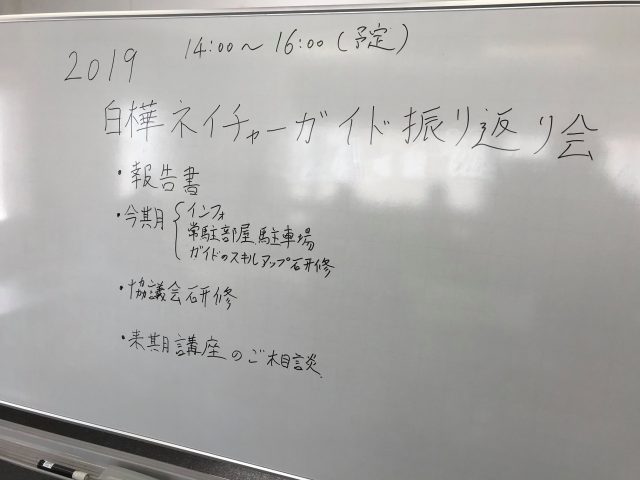 2019 14:00～16:00(予定)
白樺ネイチャーガイド振り返り会
・報告書
・今期 { インフォ
常駐部屋、駐車場
ガイドのスキルアップ研修
・協議会研修
・来期講座のご相談